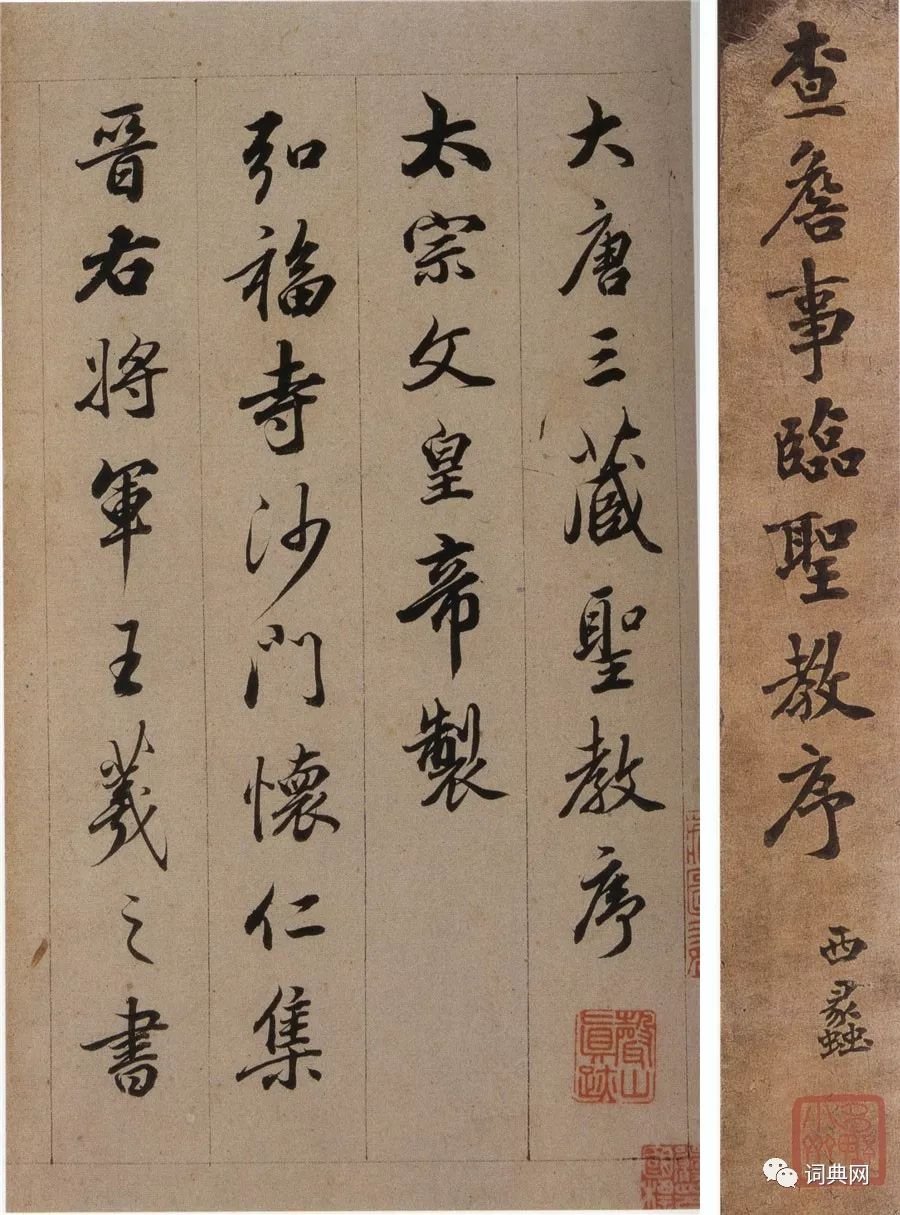 查詹事臨聖教序
西蠡
大唐三藏聖教序
聲山
眞跡
太宗文皇帝製
弘福寺沙門懷仁集
晉右將軍王羲之書
词典网